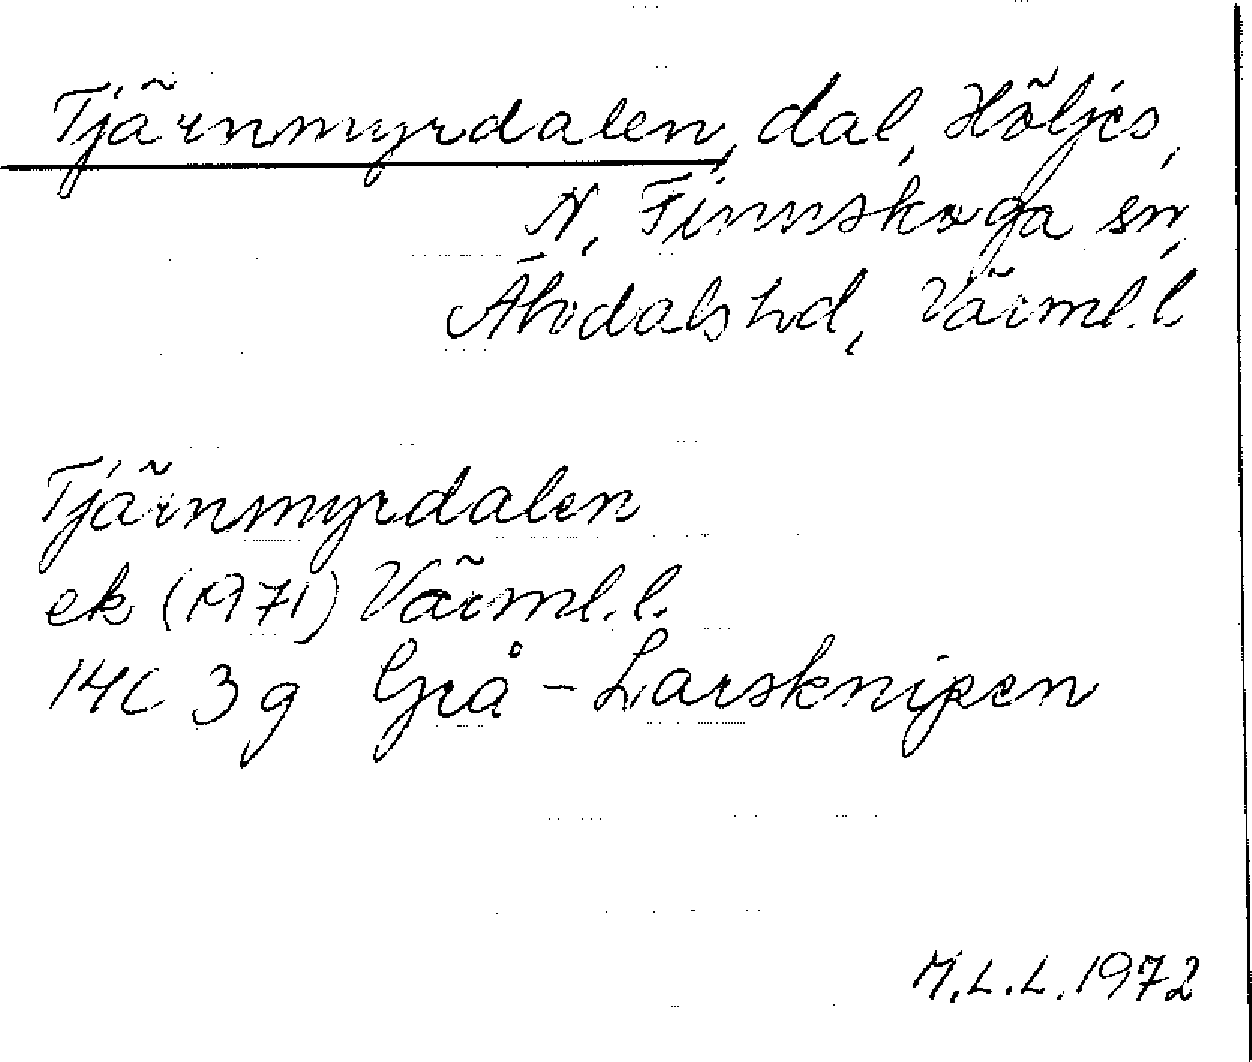 Tjärnmyrdalen, dal, Höljes,
N. Finnskoga sn,
Älvdals hd, Värml. l
Tjärnmyrdalen
ek (1971) Värml. l.
14C 3g Grå-Larsknipen
M.L.L. 1972